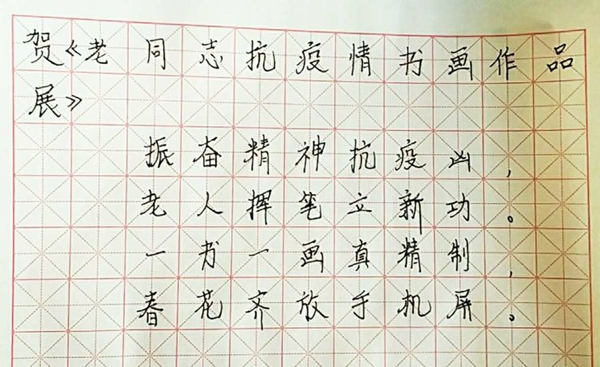 贺《老同志抗疫情书画作品
展》
振奋精神抗疫凶，
老人挥笔立新功。
一书一画真精制，
春花齐放手机屏。